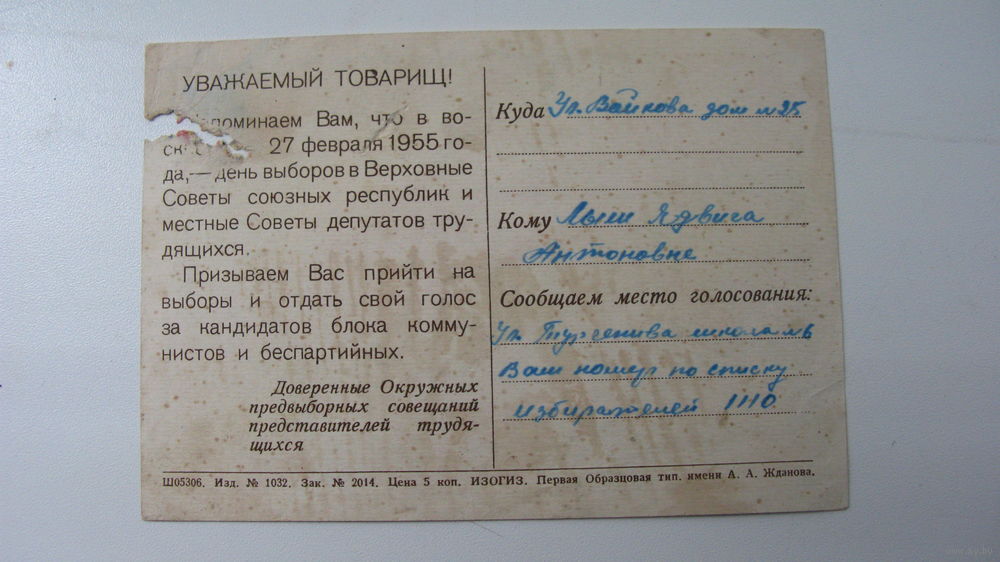 УВАЖАЕМЫЙ ТОВАРИЩ!
Вам, что в во-
27 февраля 1955 го-
да,— день выборов в Верховные
Советы союзных республик и
местные Советы депутатов тру-
дящихся.
Призываем Вас прийти на
выборы и отдать свой голос
за кандидатов блока комму-
нистов и беспартийных.
Доверенные Окружных
предвыборных совещаний
представителей трудя-
щихся
Куда Ул. Войкова дом № 25
Кому Ядвига
Антоновне
Сообщаем место голосования:
Ул. Тургенива школа №6
Ваш номер по списку
избирателей 1110
Ш05306. Изд. № 1032. Зак. № 2014. Цена 5 коп. ИЗОГИЗ. Первая Образцовая тип. имени А. А. Жданова.